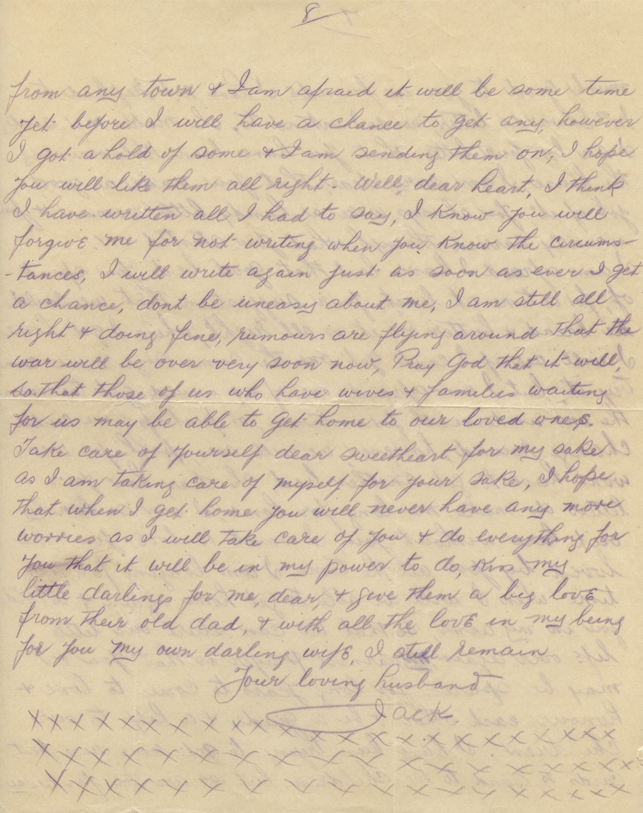 8
from any town & I am afraid it will be some time
yet before I will have a chance to get any, however
I got a hold of some & I am sending them on, I hope
you will like them all right. Well, dear heart, I think
I have written all I had to say, I know you will
forgive me for not writing when you know the circums-
-tances, I will write again just as soon as ever I get
a chance, dont be uneasy about me, I am still all
right & doing fine, rumours are flying around that the
war will be over very soon now, Pray God that it will,
so that those of us who have wives & families waiting
for us may be able to get home to our loved ones.
Take care of yourself dear sweetheart for my sake
as I am taking care of myself for your sake, I hope
that when I get home you will never have any more
worries as I will take care of you & do everything for
you that it will be in my power to do, kiss my
little darlings for me, dear, & give them a big love
from their old dad, & with all the love in my being
for you my own darling wife, I still remain
Your loving husband
Jack.
x x x x x x x x x x x x x x x x x x x x x x x x x x x x
x x x x x x x x x x x x x x x x x x x x x x x x x x x
x x x x x x x x x x x x x x x x x x x x x x x x x